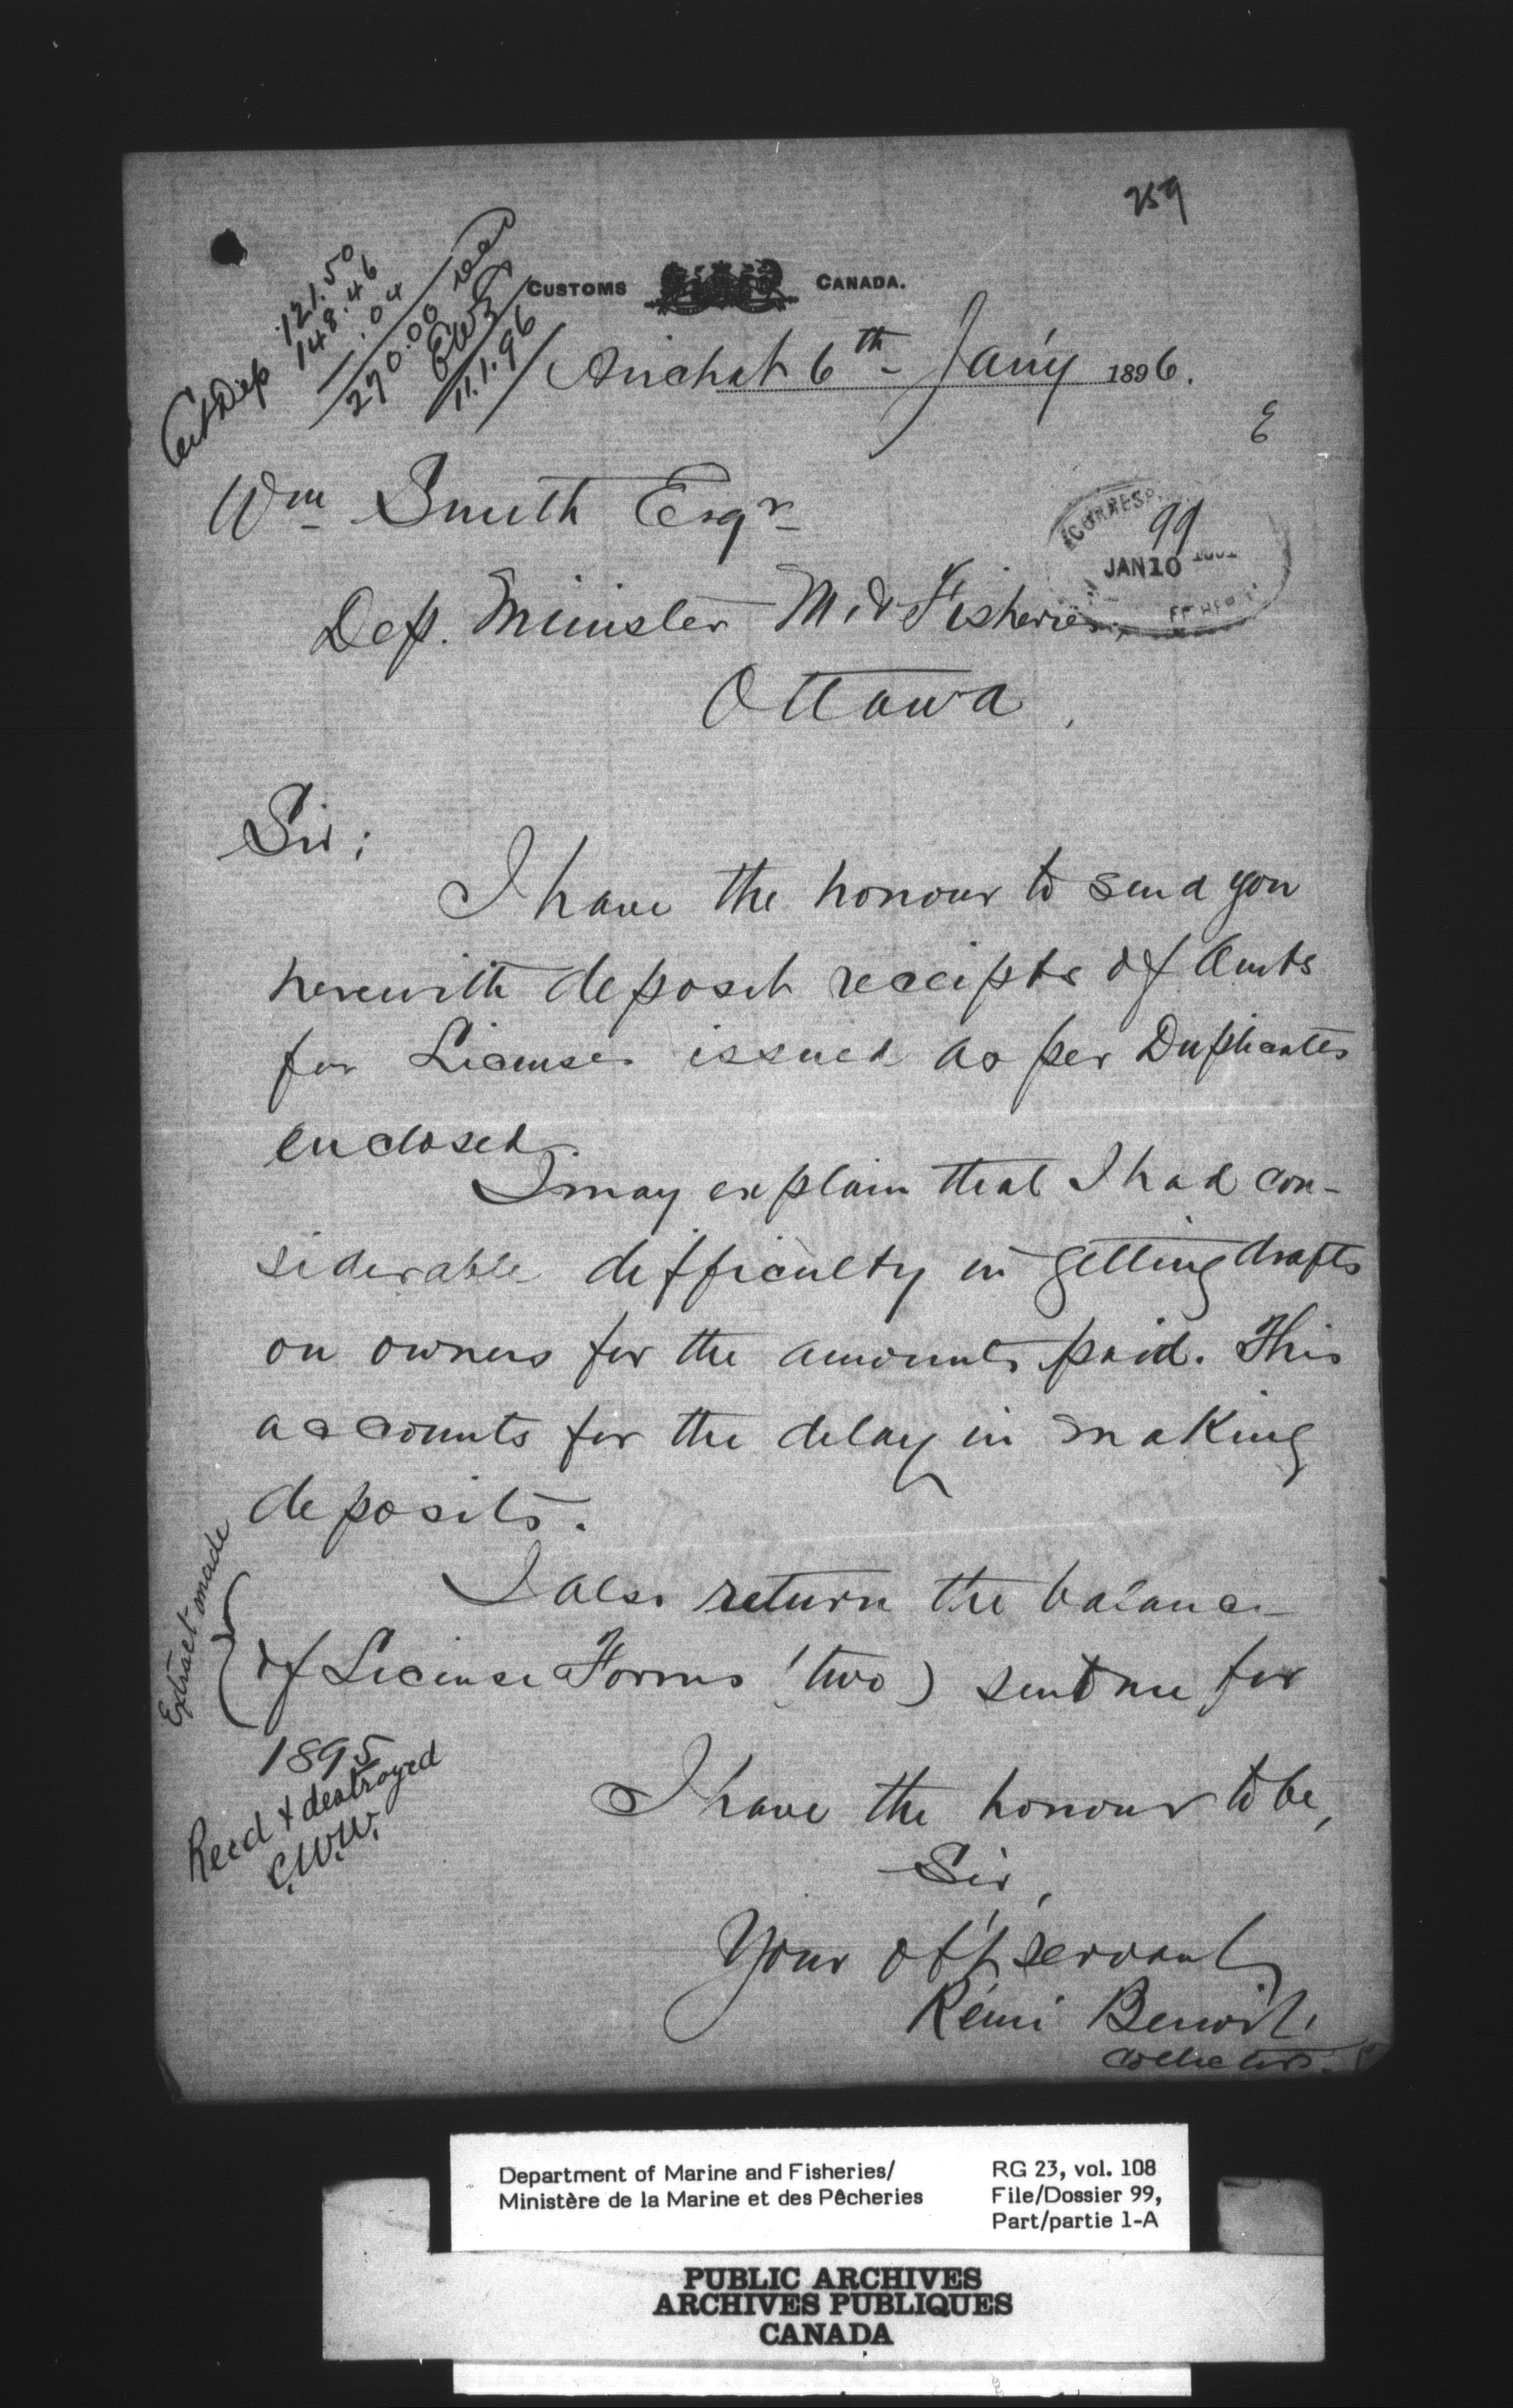 259
CUSTOMS CANADA.
121.50
148.46
.04
270.00
11.1.96
Arichat 6th Jan'y 1896.
E
Wm Smith Esqr
CORRESP
99
JAN 10
Dep. Minister M. & Fisheries
Ottawa,
Sir;
I have the honour to send you
herewith deposit receipts of Amts
for Licenses issued as per Duplicates
enclosed.
I may explain that I had con-
siderable difficulty in getting drafts
on owners for the amounts paid. This
accounts for the delay in making
deposits.
Extract made
I also return the balance
of License Forms (two) sent me for
1895
Recd & destroyed
C.W.W.
I have the honour to be,
Sir,
Your obt servant
Rémi Benoit.
Collector.
Department of Marine and Fisheries/
Ministère de la Marine et des Pêcheries
RG 23, vol. 108
File/Dossier 99,
Part/partie 1-A
PUBLIC ARCHIVES
ARCHIVES PUBLIQUES
CANADA